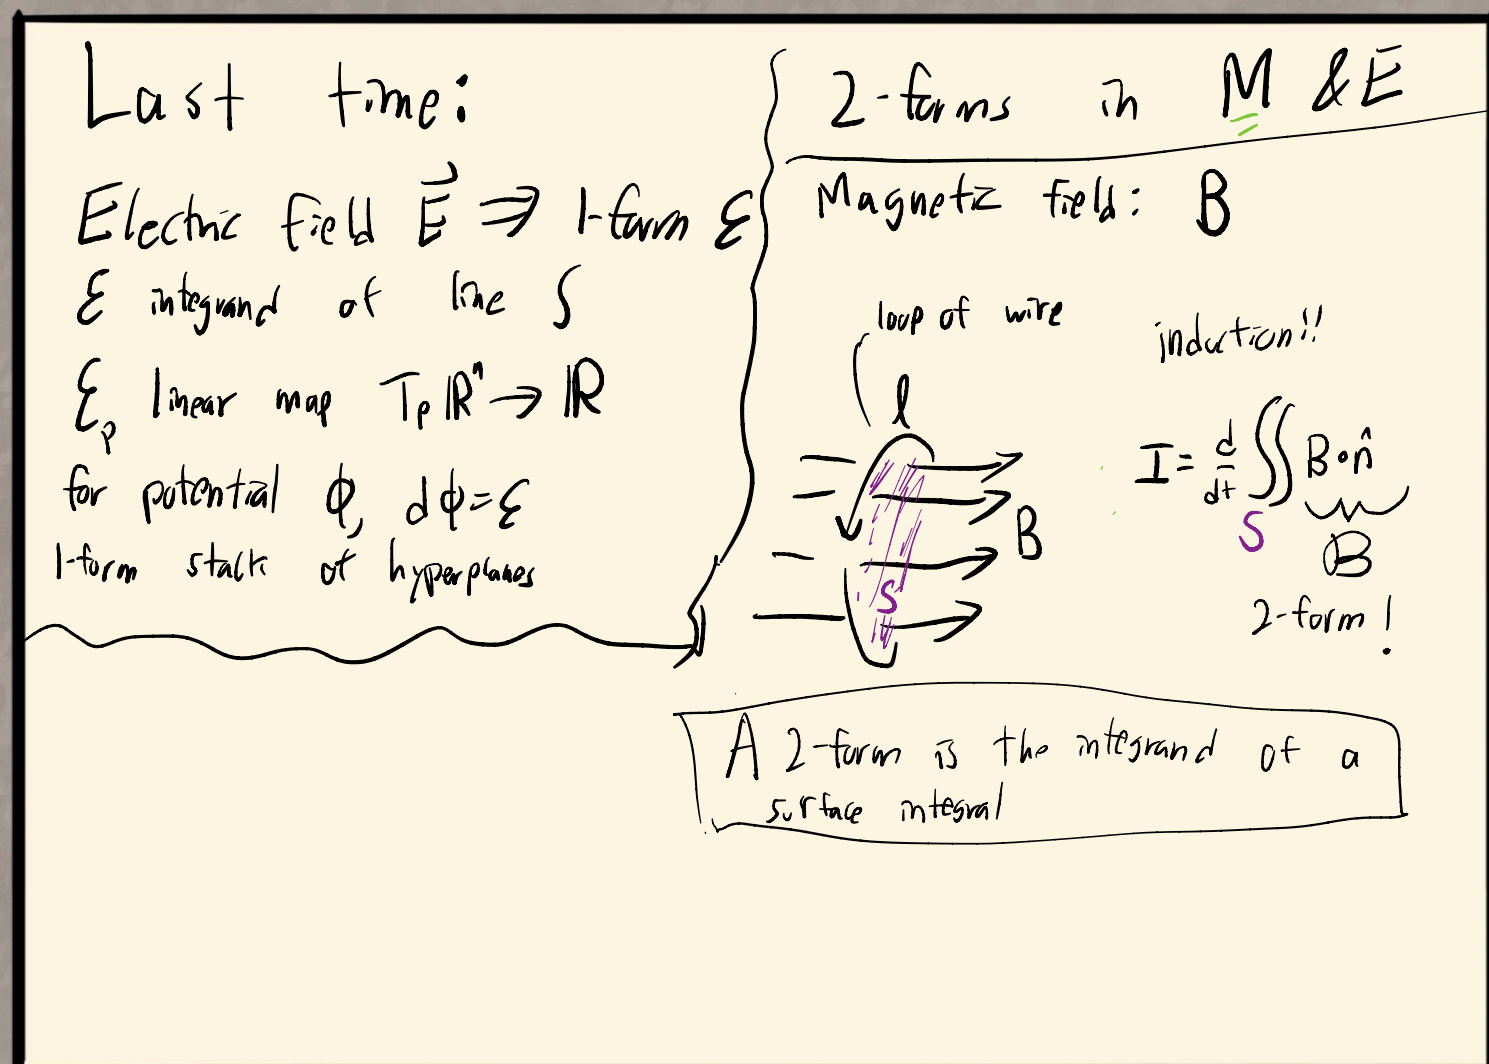 Last time:
Electric field E⃗ ⇒ 1-form ℰ
ℰ integrand of line ∫
ℰₚ linear map Tₚℝⁿ→ ℝ
for potential ϕ, dϕ=ℰ
1-form stack of hyperplanes
2-forms in M & E
Magnetic field: B
loop of wire
induction!!
l
B
S
I = d/dt ∬ B·n̂
S
B
2-form!
A 2-form is the integrand of a
surface integral